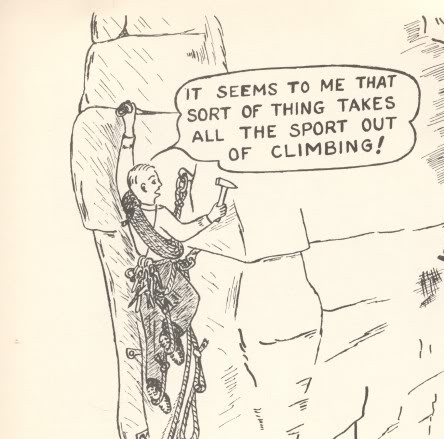 IT SEEMS TO ME THAT
SORT OF THING TAKES
ALL THE SPORT OUT
OF CLIMBING!